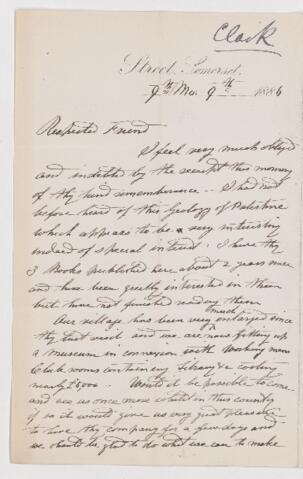 Clark
Street, Somerset.
9th Mo. 9th 1886
Respected Friend
I feel very much obliged
and indebted by the receipt this morning
of thy kind remembrance - I had not
before heard of this Geology of Palestine
which appears to be a very interesting
indeed of special interest. I have thy
3 Books published here about 2 years since
and have been greatly interested in them
but have not finished reading them
Our village has been very much enlarged since
thy last visit, and we are now fitting up
a museum in connexion with Working mens
Club rooms containing library &c costing
nearly £5,000 - Would it be possible to come
and see us once more whilst in this country
if so it would give us very great pleasure
to have thy company for a few days and
we should be glad to do what we can to make